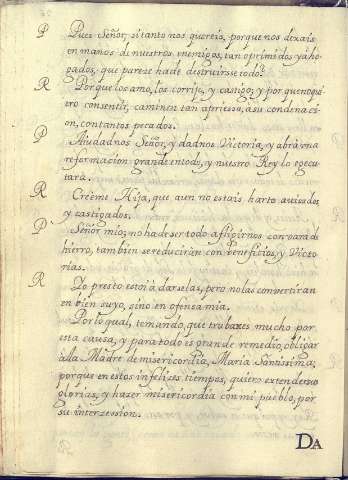 P Pues Señor, si tanto nos quereis, porque nos dexais
en manos de nuestros enemigos, tan oprimidos y aho-
gados, que pareze ha de destruirse todo?
R Porque los amo, los corrijo, y castigo; y por que no qui-
ero consentir, caminen tan apriessa, a su condenaci-
on, con tantos pecados.
P Aiudadnos Señor, y dadnos Victoria, y abrà una
reformacion grande en todo, y nuestro Rey lo egecu-
tarà.
R Crèeme Hija, que aun no estais harto auisados
y castigados.
P Señor mio; no ha de ser todo afligirnos con vara de
hierro, tambien se reducirán con beneficios, y Victo-
rias.
R Yo presto estoi à darselas, pero no las convertiràn
en bien suyo, sino en ofensa mia.
Por lo qual, te mando, que trabaxes mucho por
esta causa, y para todo es grande remedio, obligar
a la Madre de misericordia, Maria Santissima;
porque en estos infelises tiempos, quiero extender sus
glorias, y hazer misericordia con mi pueblo, por
su interzession.
DA